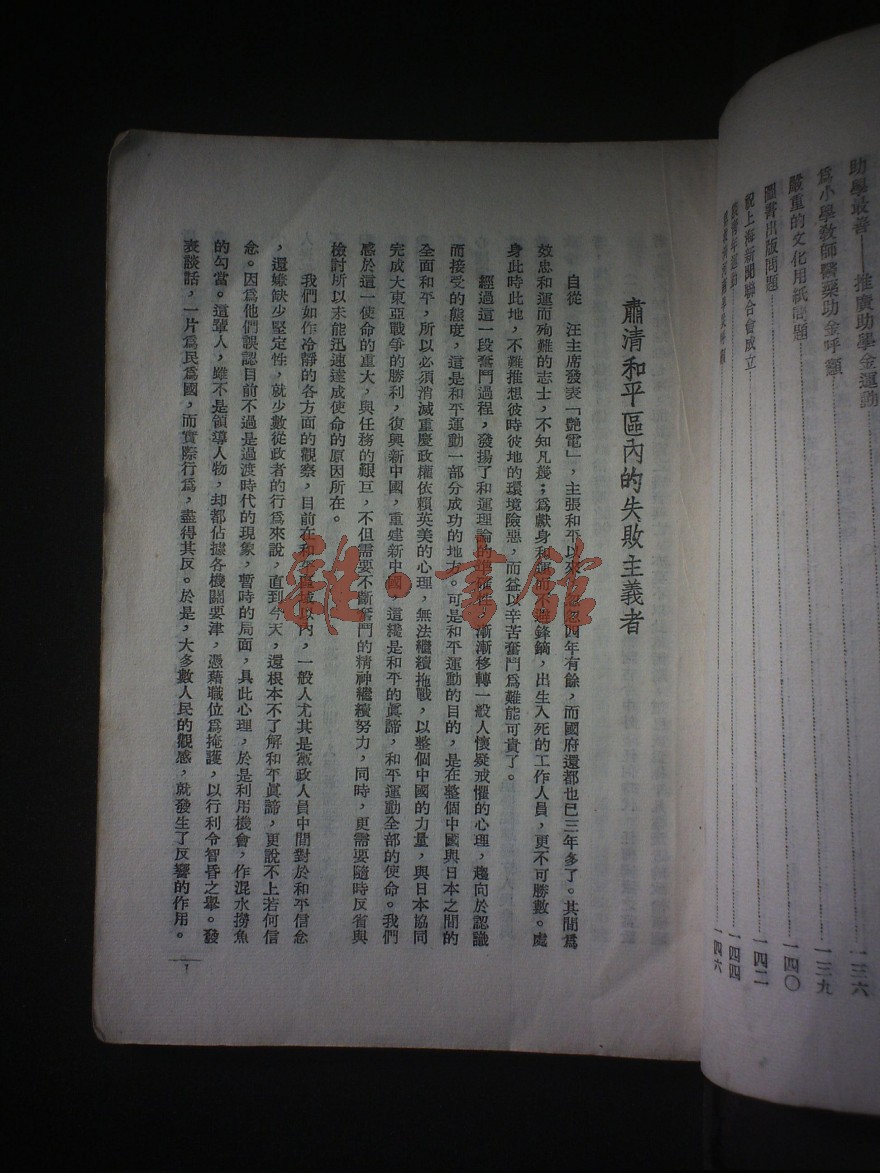 助學最善——推廣助學金運動……一三六
爲小學教師醫藥助金呼籲……一三九
嚴重的文化用紙問題……一四〇
圖書出版問題……一四二
祝上海新聞聯合會成立……一四四
青年運動……一四六
肅清和平區內的失敗主義者
自從　汪主席發表「艷電」，主張和平以來，忽忽四年有餘，而國府還都也已三年多了。其間爲
效忠和運而殉難的志士，不知凡幾；爲獻身和運而不避鋒鏑，出生入死的工作人員，更不可勝數。處
身此時此地，不難推想彼時彼地的環境險惡，而益以辛苦奮鬥爲難能可貴了。
經過這一段奮鬥過程，發揚了和運理論的準確性，漸漸移轉一般人懷疑戒懼的心理，趨向於認識
而接受的態度，這是和平運動一部分成功的地方。可是和平運動的目的，是在整個中國與日本之間的
全面和平，所以必須消滅重慶政權依賴英美的心理，無法繼續拖戰，以整個中國的力量，與日本協同
完成大東亞戰爭的勝利，復興新中國，重建新中國，這纔是和平的眞諦，和平運動全部的使命。我們
感於這一使命的重大，與任務的艱巨，不但需要不斷奮鬥的精神繼續努力，同時，更需要隨時反省與
檢討所以未能迅速達成使命的原因所在。
我們如作冷靜的各方面的觀察，目前在和平區域以內，一般人尤其是黨政人員中間對於和平信念
，還嫌缺少堅定性，就少數從政者的行爲來說，直到今天，還根本不了解和平眞諦，更說不上若何信
念。因爲他們誤認目前不過是過渡時代的現象，暫時的局面，具此心理，於是利用機會，作混水撈魚
的勾當。這輩人，雖不是領導人物，却都佔據各機關要津，憑藉職位爲掩護，以行利令智昏之舉。發
表談話，一片爲民爲國，而實際行爲，盡得其反。於是，大多數人民的觀感，就發生了反響的作用。
雜·書館